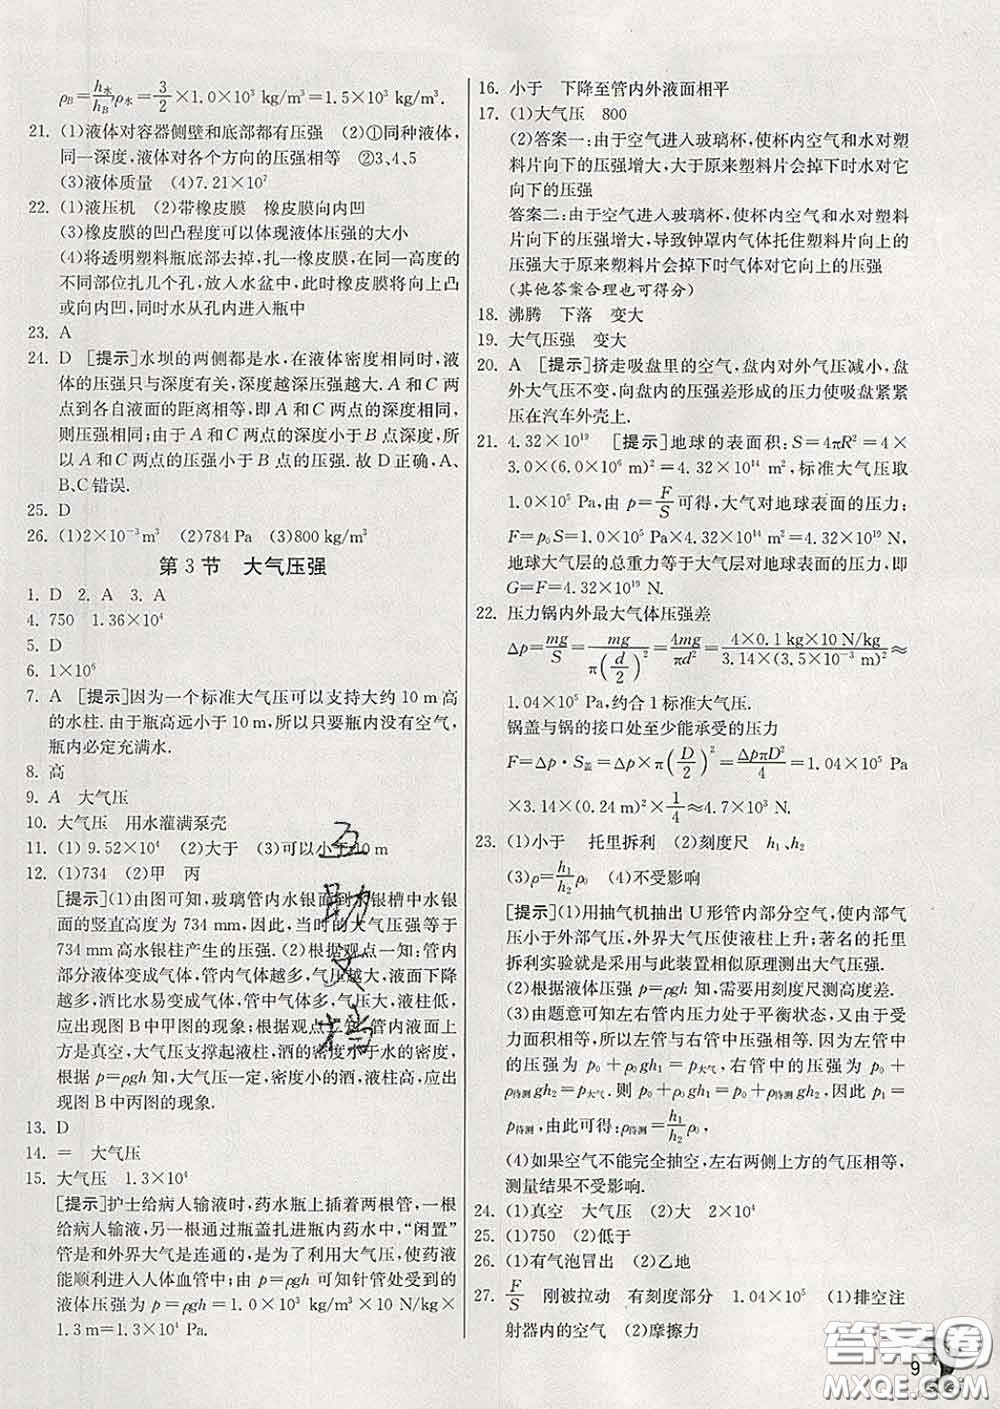 ρB=h水/hB ρ水=3/2×1.0×10³ kg/m³=1.5×10³ kg/m³.
21. (1)液体对容器侧壁和底部都有压强 (2)①同种液体,
同一深度,液体对各个方向的压强相等 ②3、4、5
(3)液体质量 (4)7.21×10⁷
22. (1)液压机 (2)带橡皮膜 橡皮膜向内凹
(3)橡皮膜的凹凸程度可以体现液体压强的大小
(4)将透明塑料瓶底部去掉,扎一橡皮膜,在同一高度的
不同部位扎几个孔,放入水盆中,此时橡皮膜向上凸
或向内凹,同时水从孔内进入瓶中
23. A
24. D [提示]水坝的两侧都是水,在液体密度相同时,液
体的压强只与深度有关,深度越深压强越大. A 和 C 两
点到各自液面的距离相等,即 A 和 C 两点的深度相同,
则压强相同;由于 A 和 C 两点的深度小于 B 点深度,所
以 A 和 C 两点的压强小于 B 点的压强. 故 D 正确,A、
B、C 错误.
25. D
26. (1)2×10⁻³ m³ (2)784 Pa (3)800 kg/m³
第 3 节 大气压强
1. D 2. A 3. A
4. 750 1.36×10⁴
5. D
6. 1×10⁶
7. A [提示]因为一个标准大气压可以支持大约 10 m 高
的水柱. 由于瓶高远小于 10 m,所以只要瓶内没有空气,
瓶内必定充满水.
8. 高
9. A 大气压
10. 大气压 用水灌满泵壳
11. (1) 9.52×10⁴ (2)大于 (3)可以小于10 m
12. (1)734 (2)甲 丙
[提示](1)由图可知,玻璃管内水银面到水银槽中水银
面的竖直高度为 734 mm,因此,当时的大气压强等于
734 mm高水银柱产生的压强. (2)根据观点一知:管内
部分液体变成气体,管内气体越多,气压越大,液面下降
越多,酒比水易变成气体,管中气体多,气压大,液柱低,
应出现图 B 中甲图的现象;根据观点二知,管内液面上
方是真空,大气压支撑起液柱,酒的密度小于水的密度,
根据 p=ρgh,大气压一定,密度小的酒,液柱高,应出
现图 B 中丙图的现象.
13. D
14. = 大气压
15. 大气压 1.3×10⁴
[提示]护士给病人输液时,药水瓶上插着两根管,一根
给病人输液,另一根通过瓶盖扎进瓶内药水中,“闲置”
管是和外界大气是连通的,是为了利用大气压,使药液
能顺利进入人体血管中;由 p=ρgh 可知针管处受到的
液体压强为 p=ρgh=1.0×10³ kg/m³×10 N/kg×
1.3 m=1.3×10⁴ Pa.
16. 小于 下降至管内外液面相平
17. (1)大气压 800
(2)答案一:由于空气进入玻璃杯,使杯内空气和水对塑
料片向下的压强增大,大于原来塑料片会掉下时水对它
向下的压强
答案二:由于空气进入玻璃杯,使杯内空气和水对塑料片
向下的压强增大,导致钟罩内气体托住塑料片向上的
压强大于原来塑料片会掉下时气体对它向上的压强
(其他答案合理也可得分)
18. 沸腾 下落 变大
19. 大气压强 变大
20. A [提示]挤走吸盘里的空气,盘内对外气压减小,盘
外大气压不变,向盘内的压强差形成的压力使吸盘紧紧
压在汽车外壳上.
21. 4.32×10¹⁹ [提示]地球的表面积:S=4πR²=4×
3.0×(6.0×10⁶ m)²=4.32×10¹⁴ m²,标准大气压取
1.0×10⁵ Pa,由 p=F/S 可得,大气对地球表面的压力:
F=p₀S=1.0×10⁵ Pa×4.32×10¹⁴ m²=4.32×10¹⁹ N,
地球大气层的总重力等于大气对地球表面的压力,即
G=F=4.32×10¹⁹ N.
22. 压力锅内外最大气体压强差
Δp=mg/S=mg/π(d/2)²=4mg/πd²=4×0.1 kg×10 N/kg/3.14×(3.5×10⁻³ m)²≈
1.04×10⁵ Pa,约合 1 标准大气压.
锅盖与锅的接口处至少能承受的压力
F=Δp·S盖=Δp×π(D/2)²=ΔpπD²/4=1.04×10⁵ Pa
×3.14×(0.24 m)²×1/4≈4.7×10³ N.
23. (1)小于 托里拆利 (2)刻度尺 h₁、h₂
(3)ρ=h₁/h₂ρ₀ (4)不受影响
[提示](1)用抽气机抽出 U 形管内部分空气,使内部气
压小于外部气压,外界大气压使液柱上升;著名的托里
拆利实验就是采用与此装置相似原理测出大气压强.
(2)根据液体压强 p=ρgh 知,需要用刻度尺测高度差.
(3)由题意可知左右管内压力处于平衡状态,又由于受
力面积相等,所以左管与右管中压强相等. 因为左管中
的压强为 p₀+ρ₀gh₁=p大气,右管中的压强为 p₀+
ρ待测gh₂=p大气. 则 p₀+ρ₀gh₁=p₀+ρ待测gh₂. 因此 p₁=
p待测,由此可得:ρ待测=h₁/h₂ρ₀.
(4)如果空气不能完全抽空,左右两侧上方的气压相等,
测量结果不受影响.
24. (1)真空 大气压 (2)大 2×10⁴
25. (1)750 (2)低于
26. (1)有气泡冒出 (2)乙地
27. F/S 刚被拉动 有刻度部分 1.04×10⁵ (1)排空注
射器内的空气 (2)摩擦力
五
助
文
档
9
答案圈
MXQE.COM